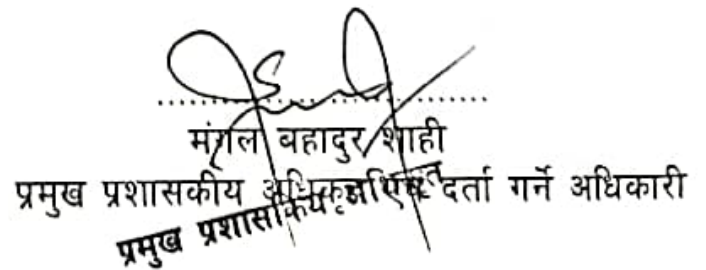 मंगल बहादुर शाही
प्रमुख प्रशासकीय अधिकृत एवं दर्ता गर्ने अधिकारी
प्रमुख प्रशासकिय अधिकृत